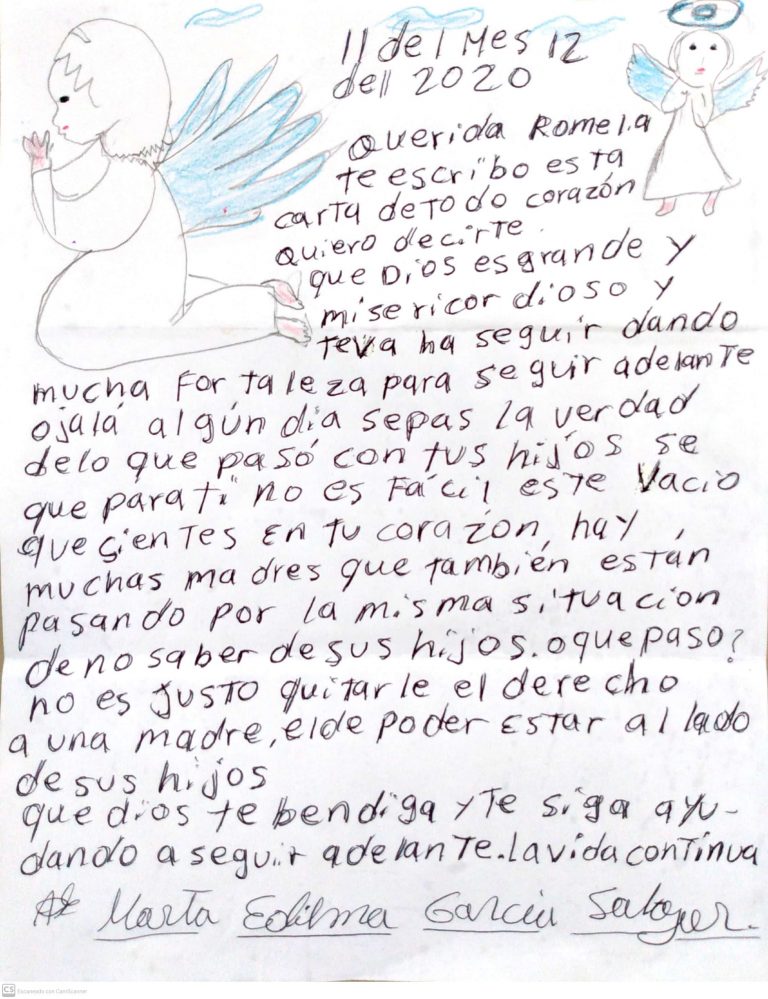 11 del Mes 12
dell 2020
Querida Romelia
te escribo esta
carta de todo corazón
quiero decirte.
que Dios es grande y
misericordioso y
teva ha seguir dando
mucha Fortaleza para seguir adelante
ojalá algún día sepas la verdad
delo que pasó con tus hijos se
que para ti no es Fácil este Vacio
que sientes en tu corazón, hay
muchas madres que también están
pasando por la misma situación
de no saber de sus hijos. o que paso?
no es justo quitarle el derecho
a una madre, el de poder estar al lado
de sus hijos
que dios te bendiga y te siga ayu-
dando a seguir adelante. la vida continua
Marta Edilma Garcia
CS Escaneado con CamScanner